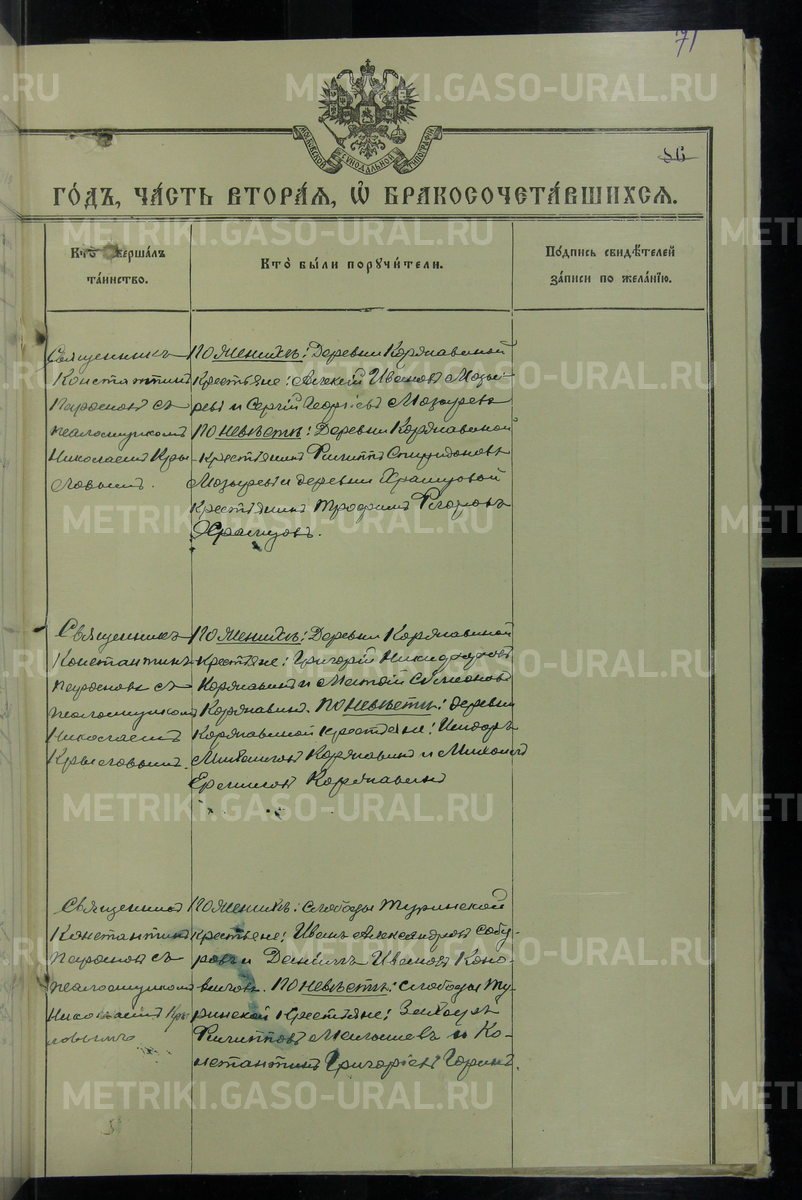 71
86
МОСКОВСКОЙ СѴНОДАЛЬНОЙ ТИПОГРАФІИ
ГО́ДЪ, ЧА́СТЬ ВТОРА́Ѧ, Ѡ҆ БРАКОСОЧЕТА́ВШИХСѦ.
Кто̀ соверша́лъ та́инство.
Кто̀ бы́ли порꙋчи́тели.
По́дпись свидѣ́телей за́писи по жела́нїю.
Священникъ
Константинъ
съ
псаломщикомъ
Николаемъ Кры-
ловымъ.
По женихѣ: Деревни Корявиной
крестьяне: Алексѣй Ивановъ Мозы-
ревъ и Сергій Георгіевъ Мозыревъ
По невѣстѣ: Деревни Корявиной
крестьянинъ Филиппъ Спиридоновъ
Мозыревъ и деревни Храмцовой
крестьянинъ Трофимъ Фроловъ
Храмцовъ.
Священникъ
Константинъ
съ
псаломщикомъ
Николаемъ
Крыловымъ.
По женихѣ: Деревни Корявиной
крестьяне: Григорій Никифоровъ
Корявинъ и Матѳій Симеоновъ
Корявинъ. По невѣстѣ: деревни
Корявиной крестьяне: Исидоръ
Корявинъ и Михаилъ
Корявинъ
Священникъ
Константинъ
съ
псаломщикомъ
Николаемъ Кры-
ловымъ
По женихѣ: слободы Туринской
крестьяне: Иванъ Александровъ Собу-
ровъ и Даніилъ Ивановъ Коно-
валовъ. По невѣстѣ: слободы Ту-
ринской крестьяне: Захаръ
Филипповъ Малышевъ и Ко-
нстантинъ Григорьевъ Горинъ.
METRIKI.GASO-URAL.RU